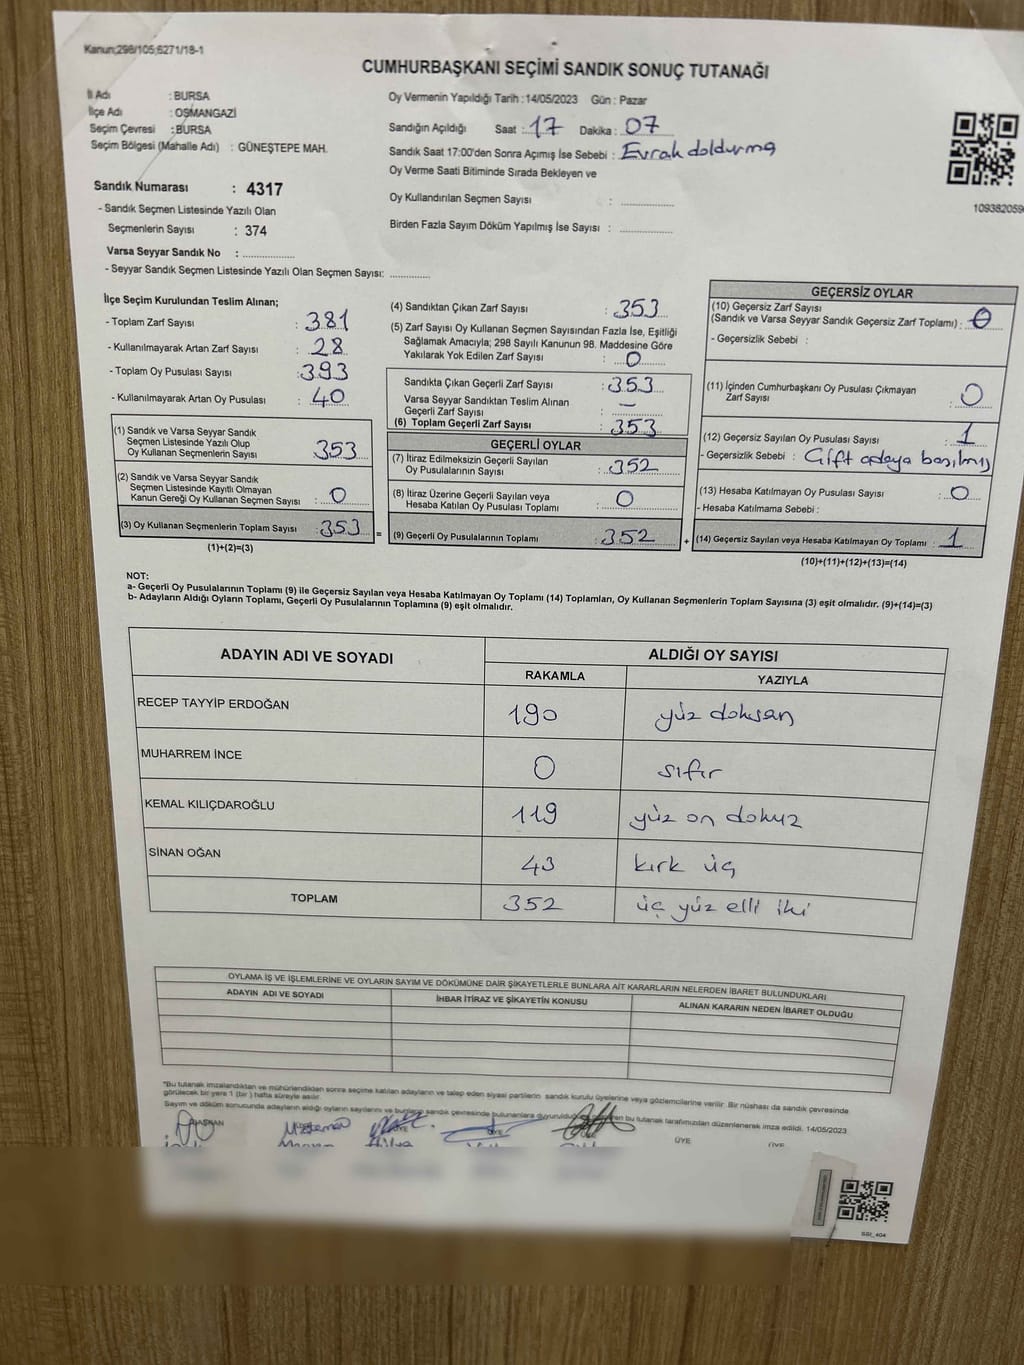 Kanun;298/105;6271/18-1
CUMHURBAŞKANI SEÇİMİ SANDIK SONUÇ TUTANAĞI
İl Adı : BURSA
İlçe Adı : OSMANGAZİ
Seçim Çevresi : BURSA
Seçim Bölgesi (Mahalle Adı) : GÜNEŞTEPE MAH.
Oy Vermenin Yapıldığı Tarih : 14/05/2023 Gün : Pazar
Sandığın Açıldığı Saat : 17 Dakika : 07
Sandık Saat 17:00'den Sonra Açımış İse Sebebi : Evrak doldurma
Oy Verme Saati Bitiminde Sırada Bekleyen ve
Oy Kullandırılan Seçmen Sayısı : ..............
Birden Fazla Sayım Döküm Yapılmış İse Sayısı : ..............
Sandık Numarası : 4317
- Sandık Seçmen Listesinde Yazılı Olan
Seçmenlerin Sayısı : 374
Varsa Seyyar Sandık No : ..............
- Seyyar Sandık Seçmen Listesinde Yazılı Olan Seçmen Sayısı: ...........
İlçe Seçim Kurulundan Teslim Alınan;
- Toplam Zarf Sayısı : 381
- Kullanılmayarak Artan Zarf Sayısı : 28
- Toplam Oy Pusulası Sayısı : 393
- Kullanılmayarak Artan Oy Pusulası : 40
(1) Sandık ve Varsa Seyyar Sandık
Seçmen Listesinde Yazılı Olup
Oy Kullanan Seçmenlerin Sayısı : 353
(2) Sandık ve Varsa Seyyar Sandık
Seçmen Listesinde Kayıtlı Olmayan
Kanun Gereği Oy Kullanan Seçmen Sayısı : 0
(3) Oy Kullanan Seçmenlerin Toplam Sayısı : 353
(1)+(2)=(3)
=
(4) Sandıktan Çıkan Zarf Sayısı : 353
(5) Zarf Sayısı Oy Kullanan Seçmen Sayısından Fazla İse, Eşitliği
Sağlamak Amacıyla; 298 Sayılı Kanunun 98. Maddesine Göre
Yakılarak Yok Edilen Zarf Sayısı : 0
Sandıkta Çıkan Geçerli Zarf Sayısı : 353
Varsa Seyyar Sandıktan Teslim Alınan
Geçerli Zarf Sayısı : –
(6) Toplam Geçerli Zarf Sayısı : 353
GEÇERLİ OYLAR
(7) İtiraz Edilmeksizin Geçerli Sayılan
Oy Pusulalarının Sayısı : 352
(8) İtiraz Üzerine Geçerli Sayılan veya
Hesaba Katılan Oy Pusulası Toplamı : 0
(9) Geçerli Oy Pusulalarının Toplamı : 352
+
GEÇERSİZ OYLAR
(10) Geçersiz Zarf Sayısı
(Sandık ve Varsa Seyyar Sandık Geçersiz Zarf Toplamı) : 0
- Geçersizlik Sebebi :
(11) İçinden Cumhurbaşkanı Oy Pusulası Çıkmayan
Zarf Sayısı : 0
(12) Geçersiz Sayılan Oy Pusulası Sayısı : 1
- Geçersizlik Sebebi : Çift adaya basılmış
(13) Hesaba Katılmayan Oy Pusulası Sayısı : 0
- Hesaba Katılmama Sebebi :
(14) Geçersiz Sayılan veya Hesaba Katılmayan Oy Toplamı : 1
(10)+(11)+(12)+(13)=(14)
NOT:
a- Geçerli Oy Pusulalarının Toplamı (9) ile Geçersiz Sayılan veya Hesaba Katılmayan Oy Toplamı (14) Toplamları, Oy Kullanan Seçmenlerin Toplam Sayısına (3) eşit olmalıdır. (9)+(14)=(3)
b- Adayların Aldığı Oyların Toplamı, Geçerli Oy Pusulalarının Toplamına (9) eşit olmalıdır.
ADAYIN ADI VE SOYADI ALDIĞI OY SAYISI
RAKAMLA YAZIYLA
RECEP TAYYİP ERDOĞAN 190 yüz doksan
MUHARREM İNCE 0 sıfır
KEMAL KILIÇDAROĞLU 119 yüz on dokuz
SİNAN OĞAN 43 kırk üç
TOPLAM 352 üç yüz elli iki
OYLAMA İŞ VE İŞLEMLERİNE VE OYLARIN SAYIM VE DÖKÜMÜNE DAİR ŞİKAYETLERLE BUNLARA AİT KARARLARIN NELERDEN İBARET BULUNDUKLARI
ADAYIN ADI VE SOYADI İHBAR İTİRAZ VE ŞİKAYETİN KONUSU ALINAN KARARIN NEDEN İBARET OLDUĞU
*Bu tutanak imzalandıktan ve mühürlendikten sonra seçime katılan adayların ve talep eden siyasi partilerin sandık kurulu üyelerine veya gözlemcilerine verilir. Bir nüshası da sandık çevresinde
görülecek bir yere 1 (bir) hafta süreyle asılır.
Sayım ve döküm sonucunda adayların aldığı oyların sayılarını ve bunların sandık çevresinde bulunanlara duyurulduğu bu tutanak tarafımızdan düzenlenerek imza edildi. 14/05/2023
ÜYE ÜYE
SSI_404